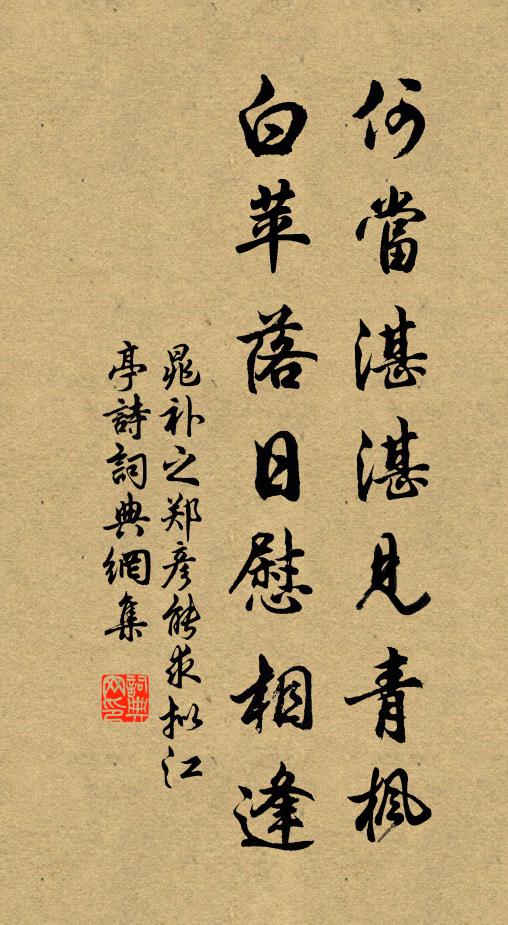 何當湛湛見青楓
白苹落日慰相逢
晁补之郑彦能求拟江
亭詩詞典網集
詞典